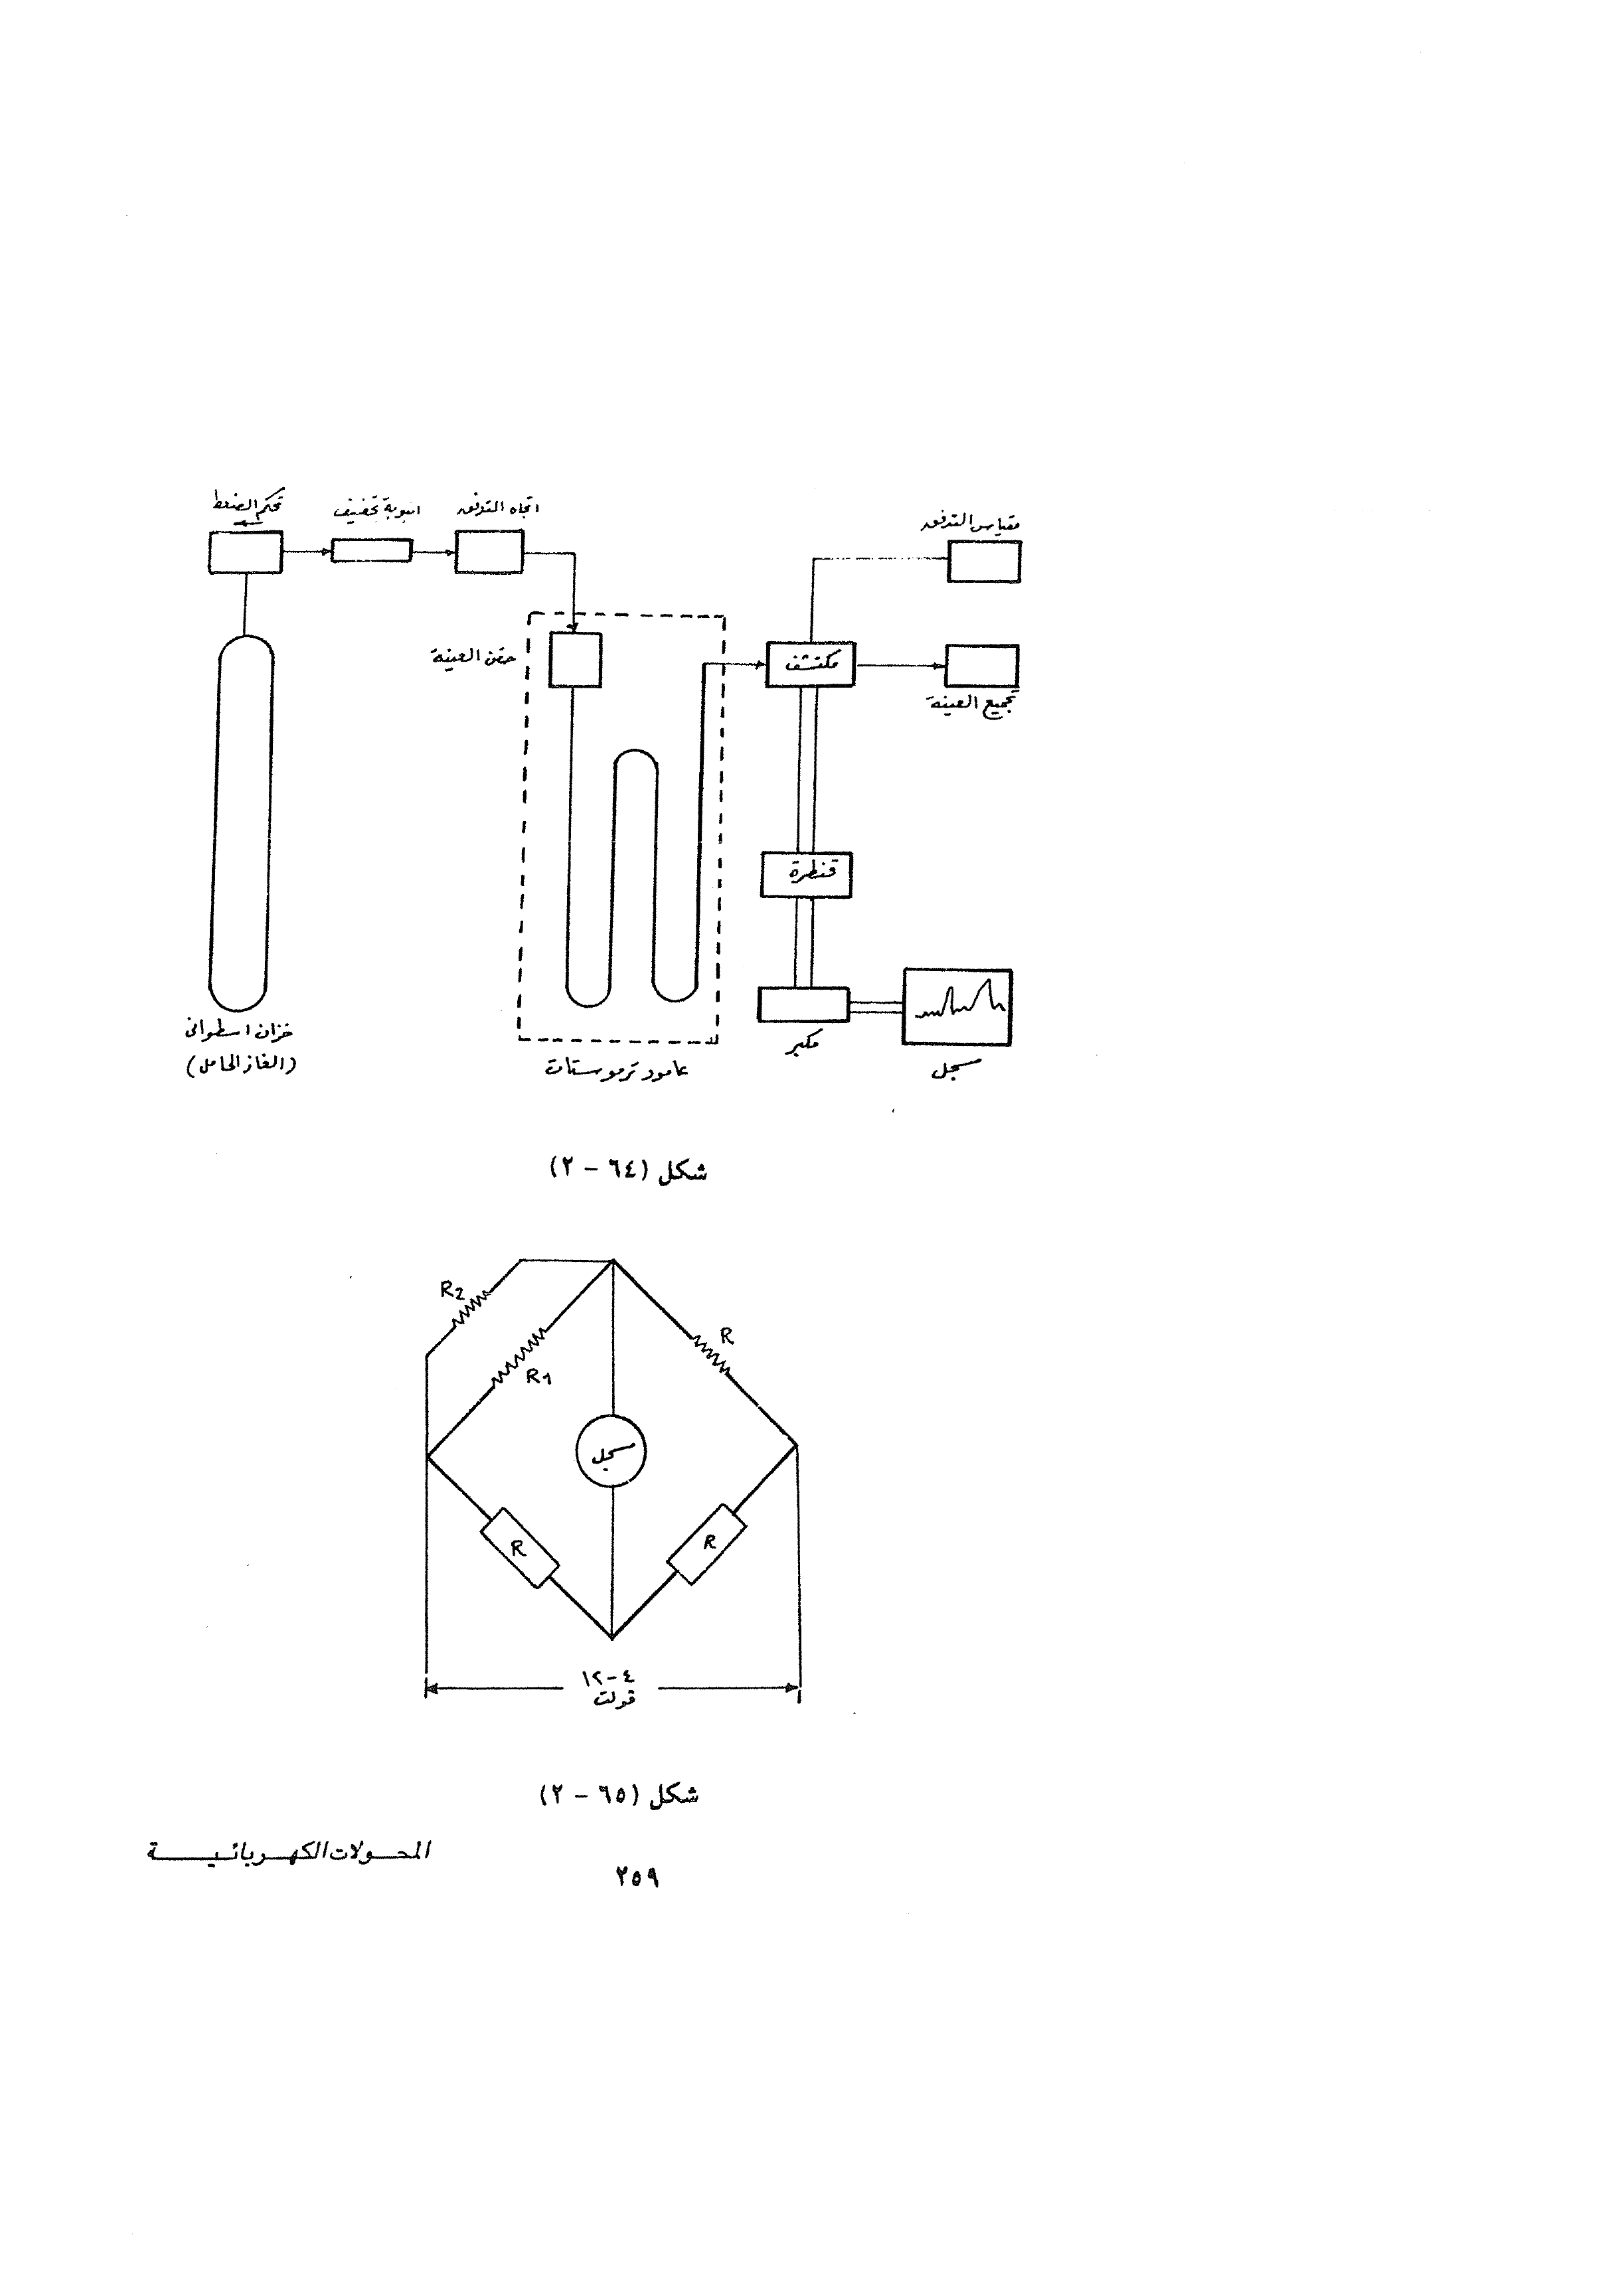 تحكم الضغط
انبوبة تجفيف
اتجاه التدفق
مقياس التدفق
حقن العينة
مكتشف
تجميع العينة
قنطرة
خزان اسطوانى
(الغاز الحامل)
عامود ترموستات
مكبر
مسجل
شكل (٦٤ - ٢)
R2
R1
R
مسجل
R
R
٤-١٢
ڤولت
شكل (٦٥ - ٢)
المحولات الكهربائية
٢٥٩